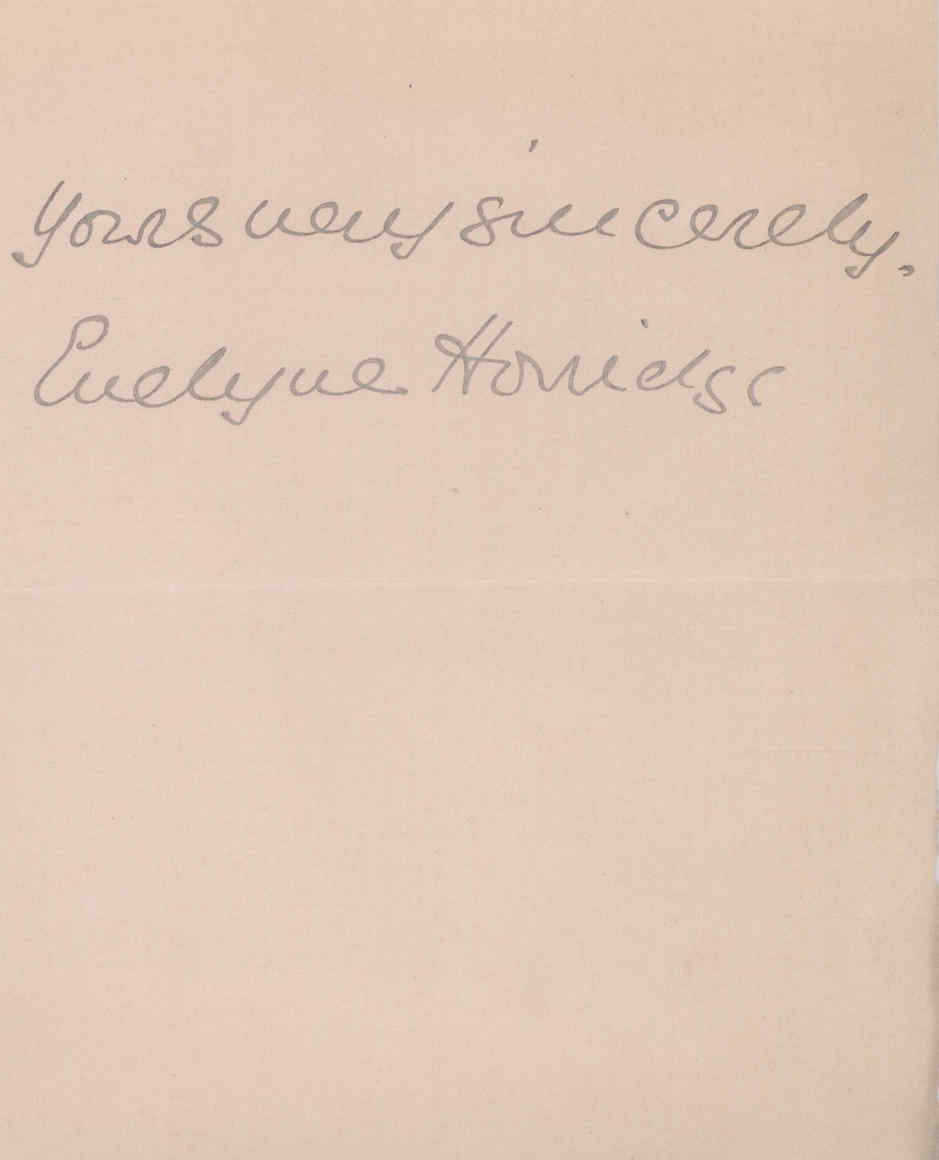 Yours very sincerely.
Evelyne Horridge